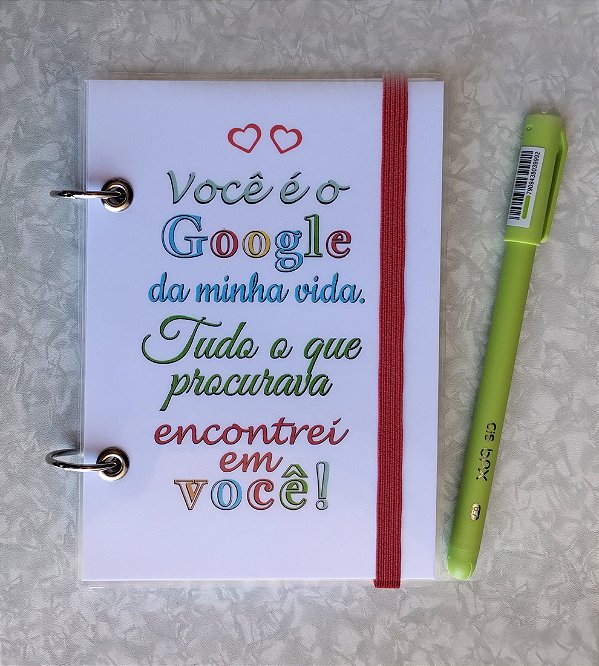 Você é o
Google
da minha vida.
Tudo o que
procurava
encontrei
em
você!
cis box